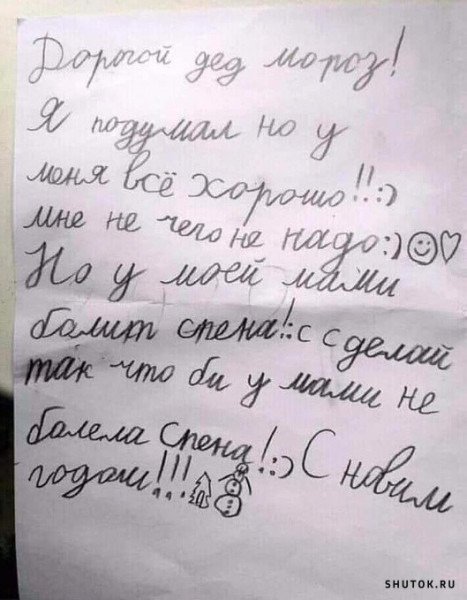 Дорогой дед мороз!
Я подумал но у
меня всё хорошо!!:)
мне не чего не надо:)☺♡
Но у моей мами
болит спена!:с сделай
так что би у мами не
болела Спена!:) С новим
годом!!!
SHUTOK.RU